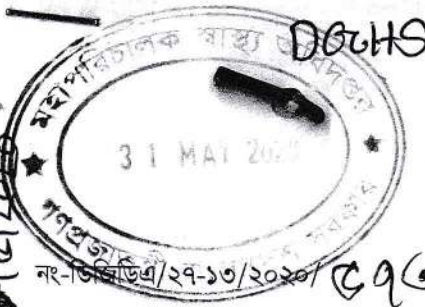 DGHS
মহাপরিচালক স্বাস্থ্য অধিদপ্তর
31 MAY 202
গণপ্রজাতন্ত্রী বাংলাদেশ সরকার
নং-ডিজিডিএ/২৭-১৩/২০২০/